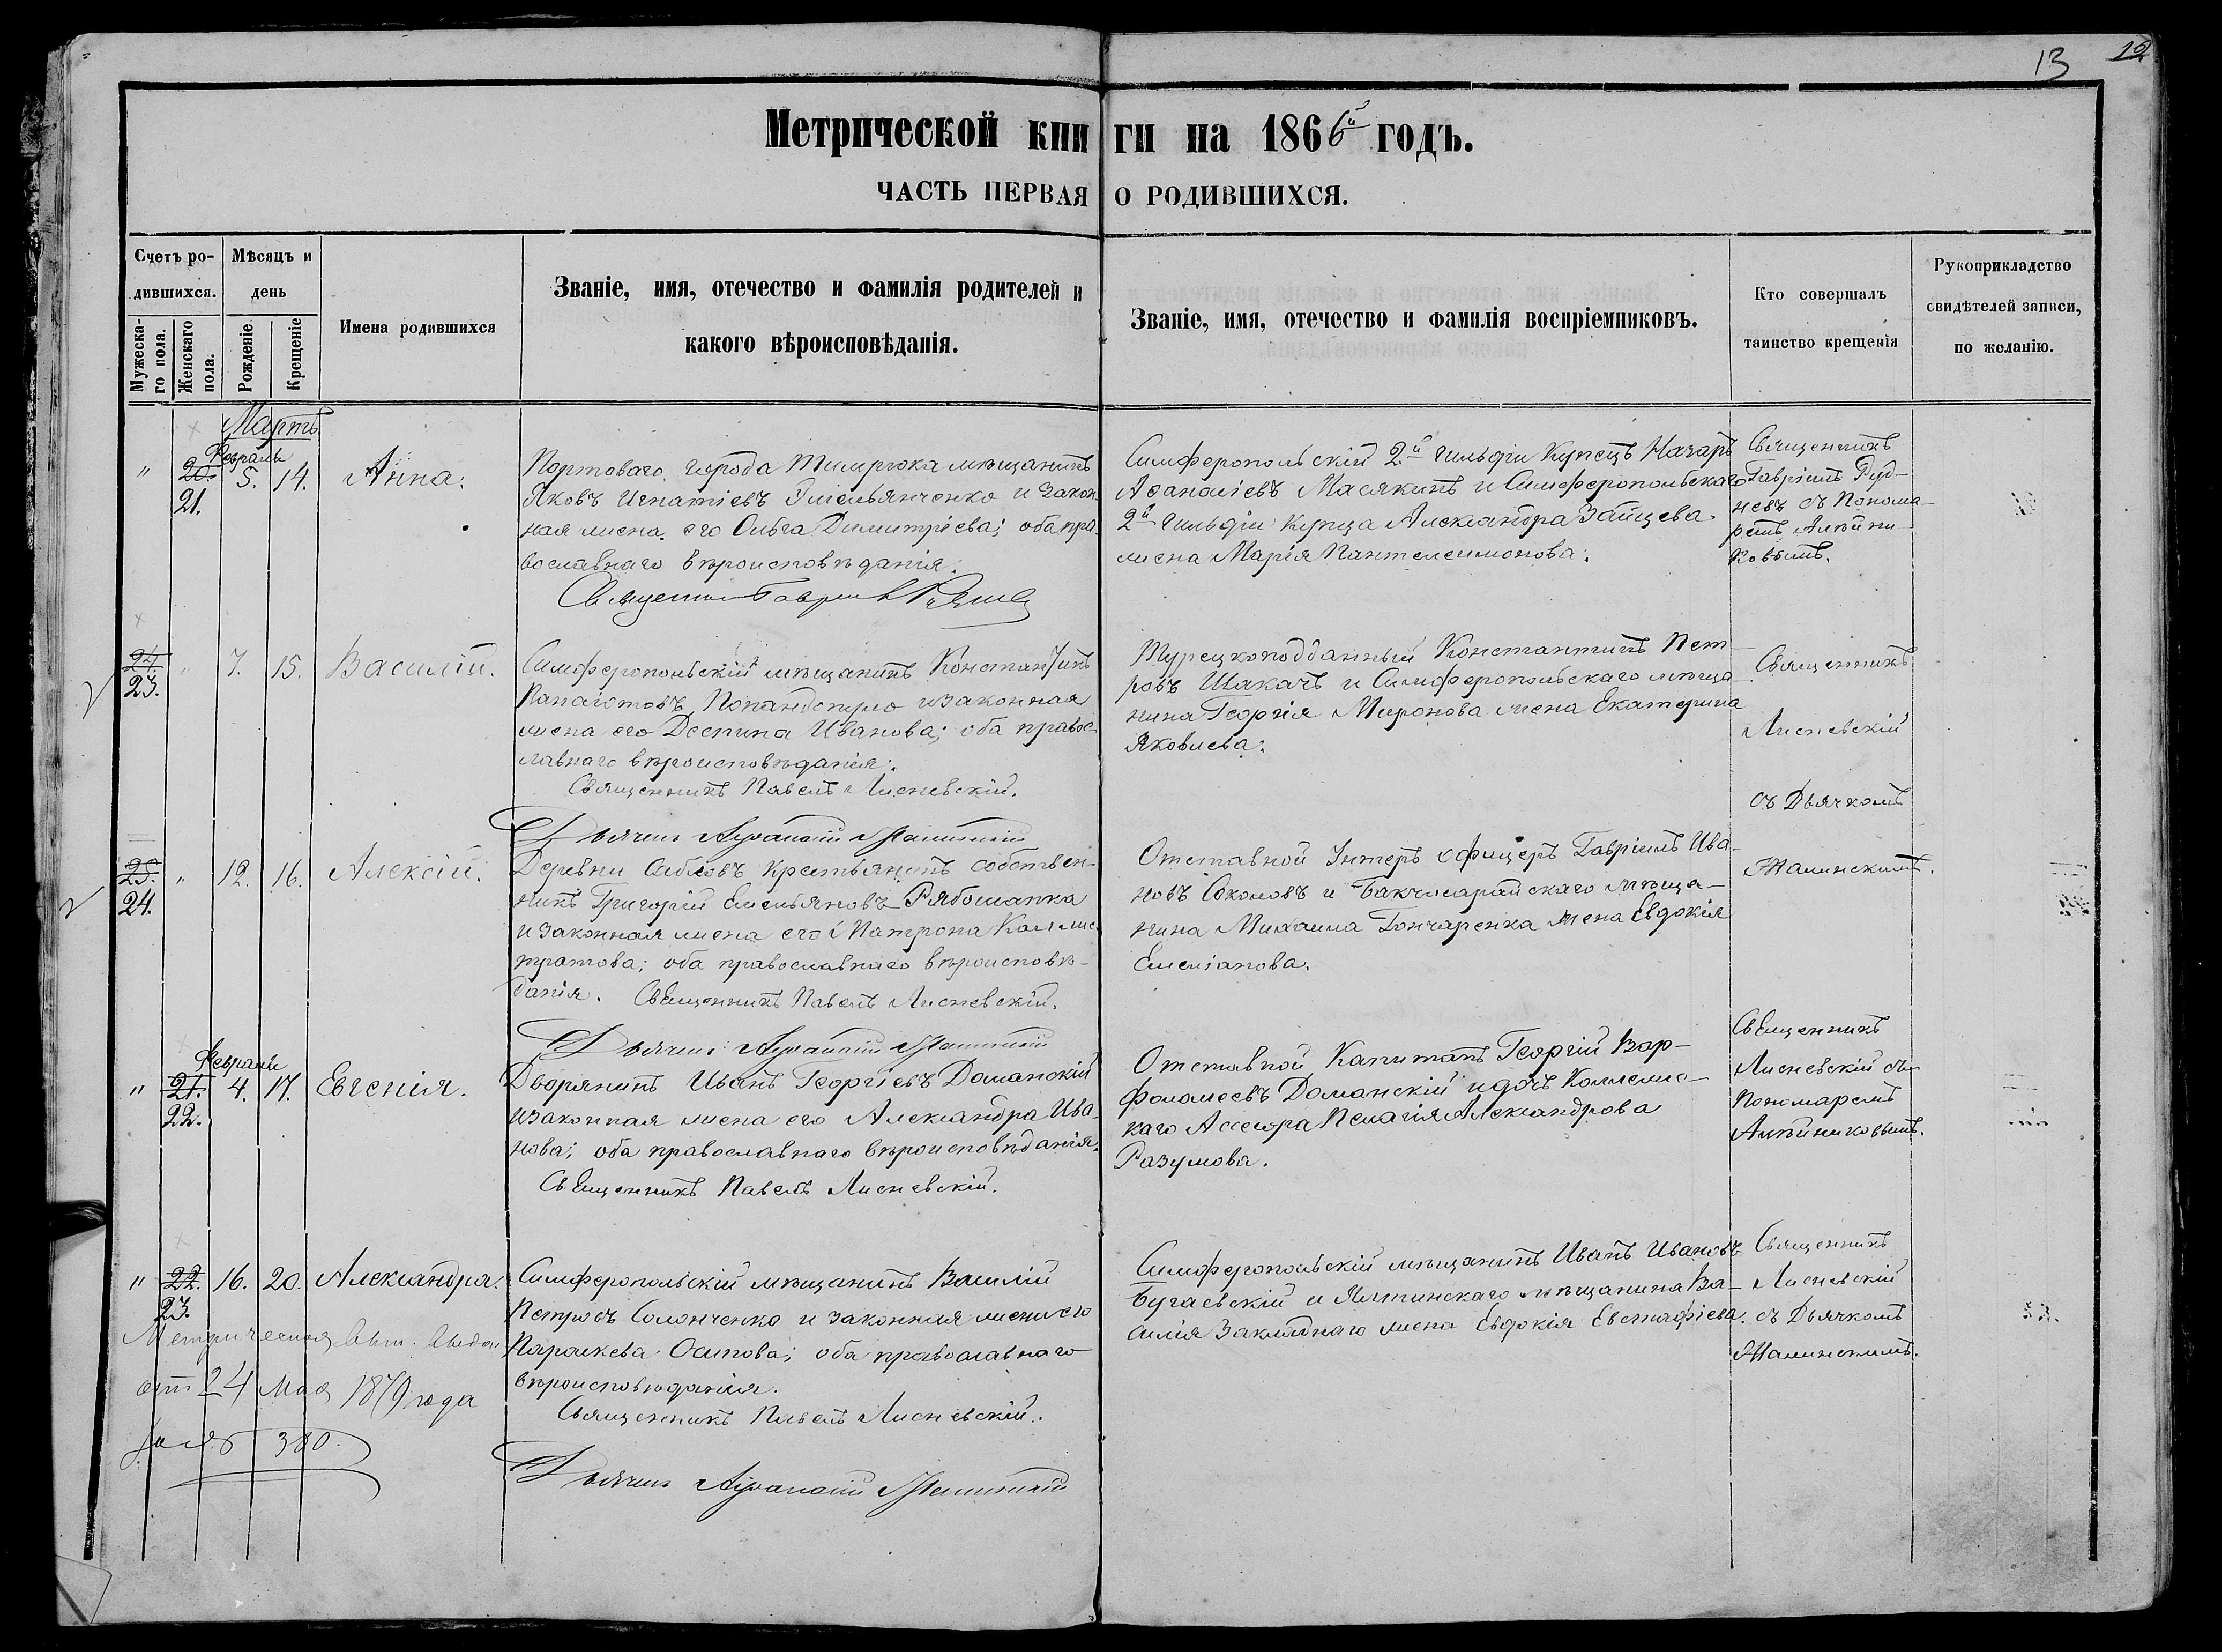 13 12
Метрической книги на 1866й годъ.
ЧАСТЬ ПЕРВАЯ О РОДИВШИХСЯ.
Счетъ родившихся.
Мужескаго пола.
Женскаго пола.
Мѣсяцъ и день
Рожденіе
Крещеніе
Имена родившихся
Званіе, имя, отечество и фамилія родителей и
какого вѣроисповѣданія.
Званіе, имя, отечество и фамилія воспріемниковъ.
Кто совершалъ
таинство крещенія
Рукоприкладство
свидѣтелей записи,
по желанію.
Мартъ
Февраль
" 20. 21. 5. 14. Анна.
Портоваго города Темрюка мѣщанинъ
Яковъ Игнатіевъ Омельянченко и закон-
ная жена его Ольга Димитріева; оба пра-
вославнаго вѣроисповѣданія.
Священникъ Гавріилъ Руднев
Симферопольскій 2й гильдіи Купецъ Назаръ
Аѳанасіевъ Масякинъ и Симферопольскаго
2й гильдіи Купца Александра Зайцева
жена Марія Пантелеимонова.
Священникъ
Гавріилъ Руд-
невъ съ Понома-
ремъ Алейни-
ковымъ.
24. 23. " 7. 15. Василій.
Симферопольскій мѣщанинъ Константинъ
Панаіотовъ Попандопуло и законная
жена его Деспина Иванова; оба правос-
лавнаго вѣроисповѣданія.
Священникъ Павелъ Лисневскій.
Дьячекъ Аѳанасій Жалинскій
Турецкоподданный Константинъ Пет-
ровъ Шакачъ и Симферопольскаго мѣща-
нина Георгія Миронова жена Екатерина
Яковлева.
Священникъ
Лисневскій
съ Дьячкомъ
Жалинскимъ.
25. 24. " 12. 16. Алексій.
Деревни Сабловъ крестьянинъ собствен-
никъ Григорій Емельяновъ Рябошапка
и законная жена его Матрона Каллис-
тратова; оба православнаго вѣроисповѣ-
данія. Священникъ Павелъ Лисневскій.
Дьячекъ Аѳанасій Жалинскій
Отставной Унтеръ офицеръ Гавріилъ Ива-
новъ Соколовъ и Бакчисарайскаго мѣща-
нина Михаила Гончаренка жена Евдокія
Емеліанова.
Февраль
" 21. 22. 4. 17. Евгенія.
Дворянинъ Иванъ Георгіевъ Доманскій
и законная жена его Александра Ива-
нова; оба православнаго вѣроисповѣданія.
Священникъ Павелъ Лисневскій.
Отставной Капитанъ Георгій Вар-
фоломеевъ Доманскій и дочь Коллежс-
каго Ассесора Пелагія Александрова
Разумова.
Священникъ
Лисневскій съ
Пономаремъ
Алейниковымъ.
" 22. 23. 16. 20. Александра.
Симферопольскій мѣщанинъ Василій
Петровъ Солонченко и законная жена его
Параскева Осипова; оба православнаго
вѣроисповѣданія.
Священникъ Павелъ Лисневскій.
Дьячекъ Аѳанасій Жалинскій
Симферопольскій мѣщанинъ Иванъ Ивановъ
Бугаевскій и Ялтинскаго мѣщанина Ва-
силія Закладнаго жена Евдокія Евстафіева.
Священникъ
Лисневскій
съ Дьячкомъ
Жалинскимъ.
Метрическая выда
отъ 24 Мая 1879 года
за № 380.